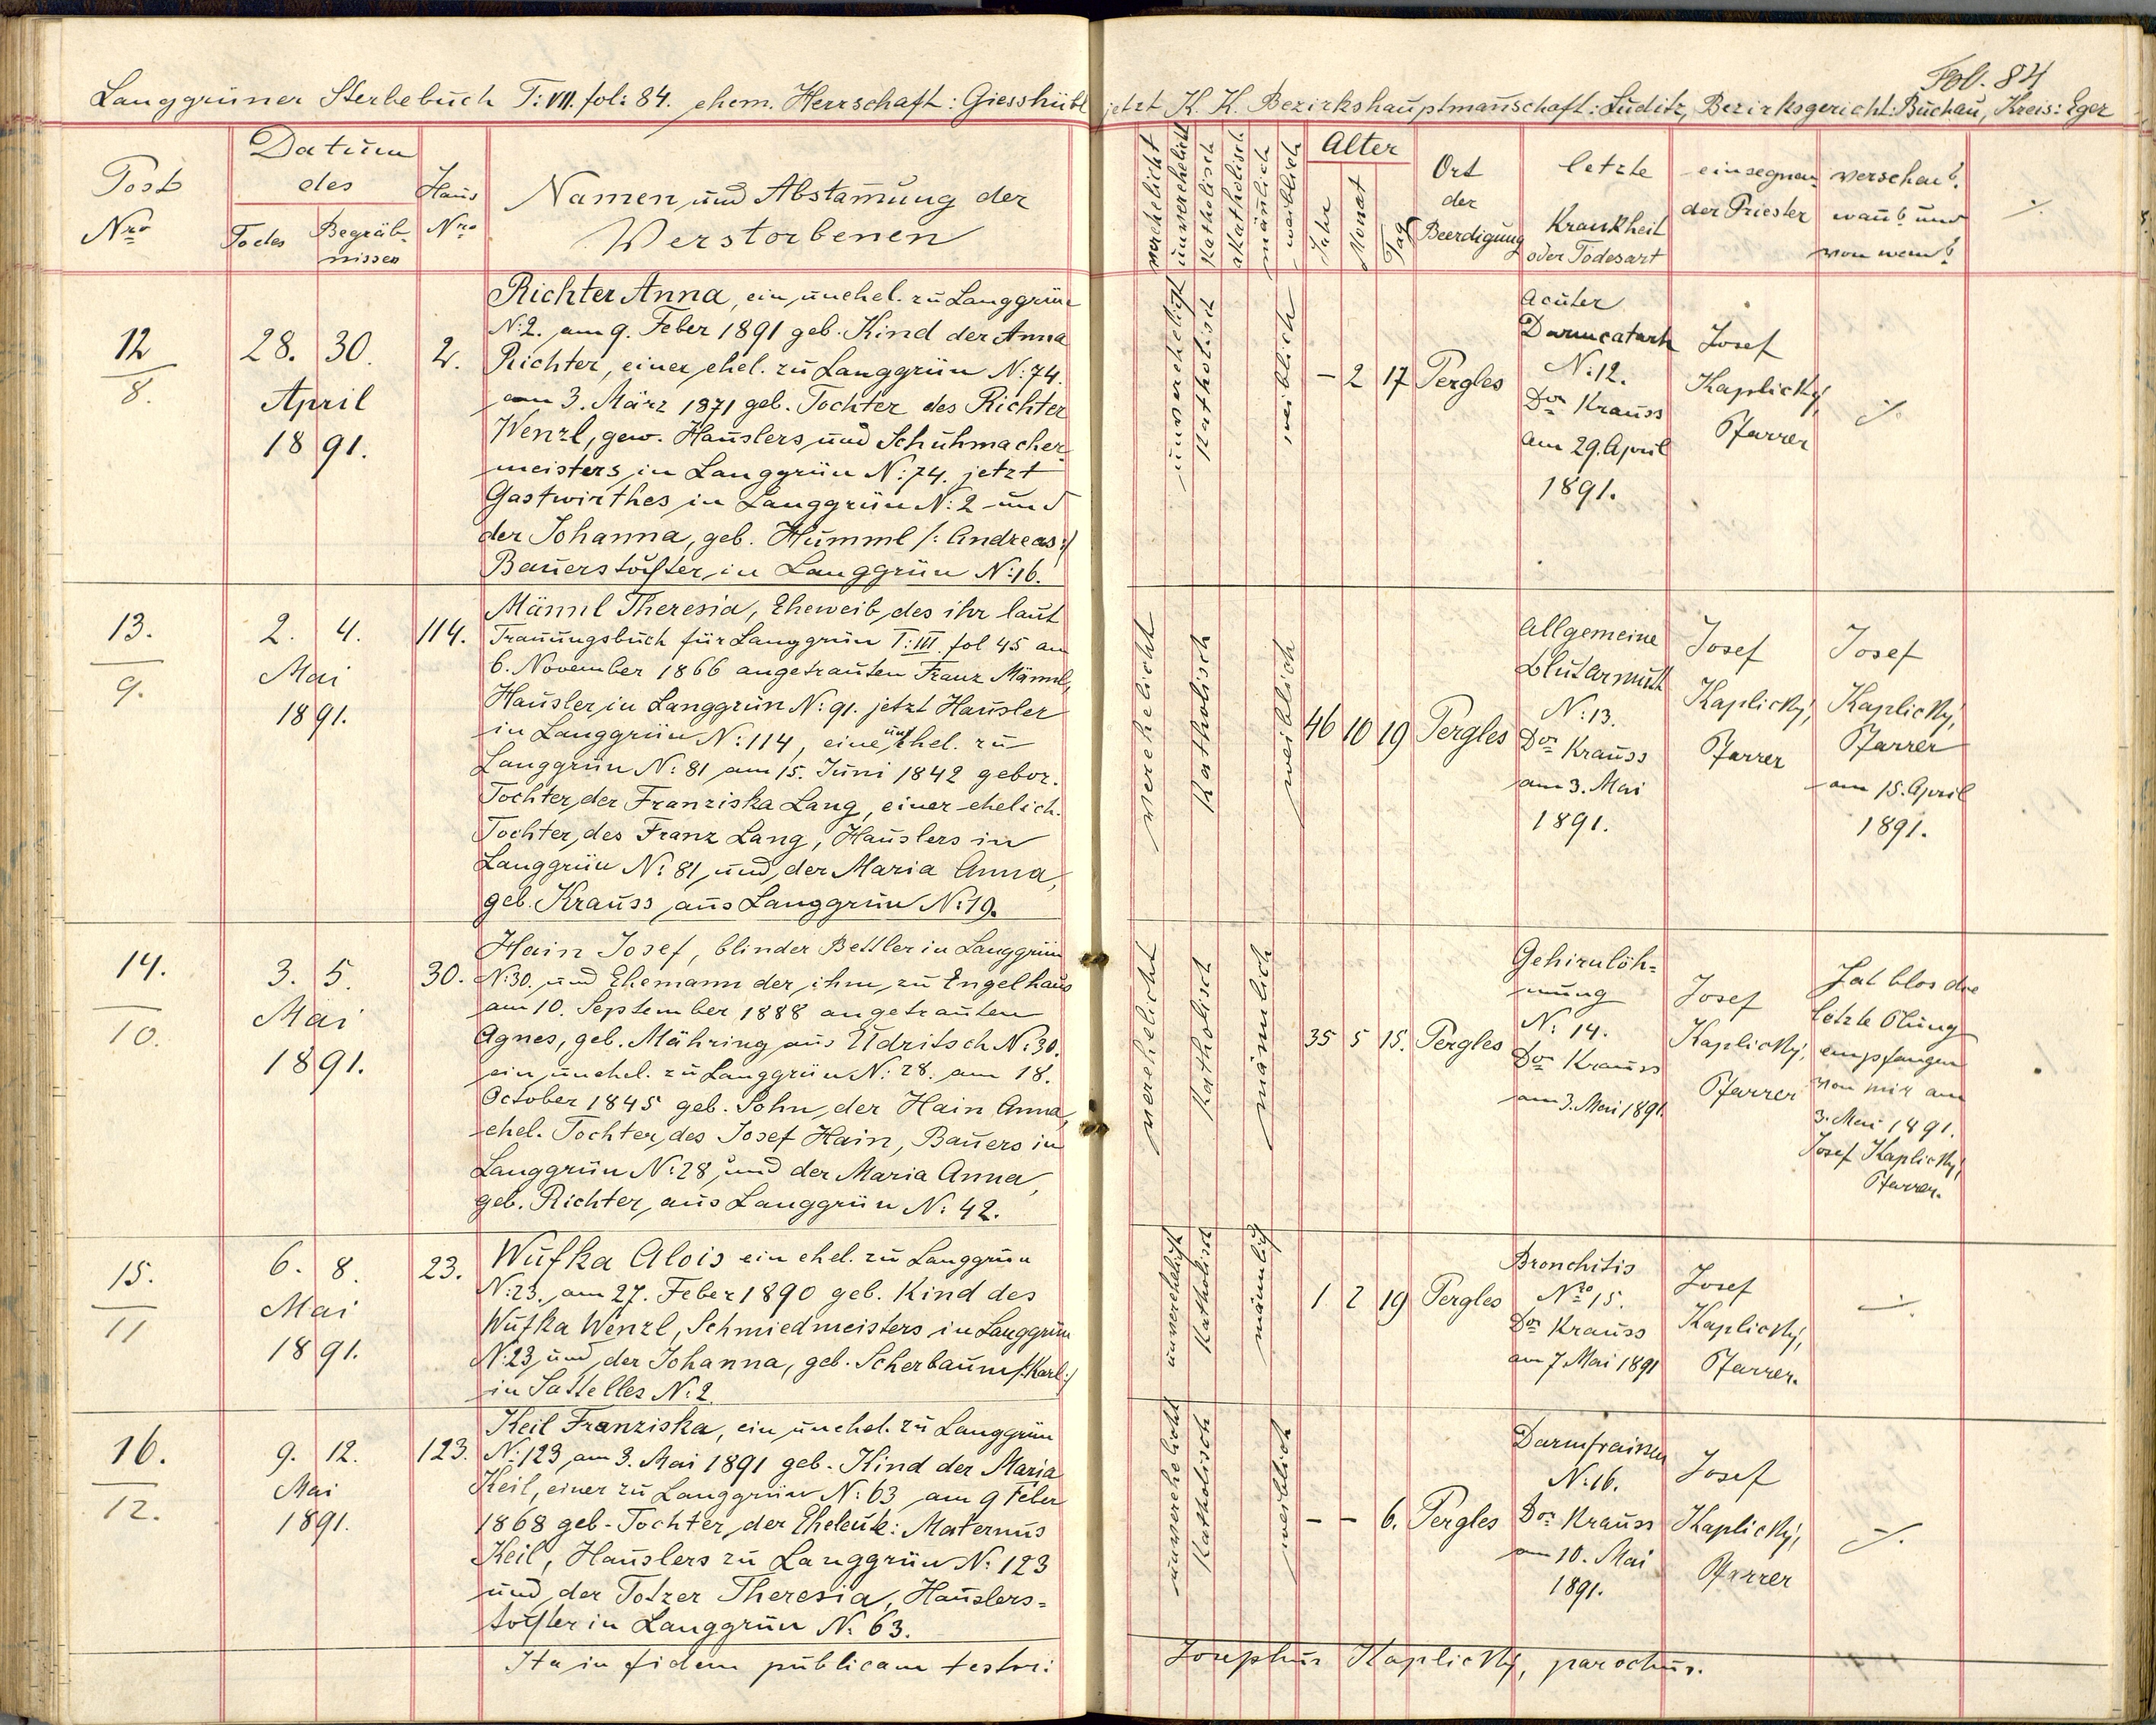 Fol. 84
Langgrüner Sterbebuch T: VII. fol: 84. ehem. Herrschaft: Giesshübl jetzt K. K. Bezirkshauptmanschaft: Luditz, Bezirksgericht: Buchau, Kreis: Eger
Post
Nro
Datum
des
Todes
Begräb-
nisses
Haus
Nro
Namen und Abstamung der
Verstorbenen
verehelicht
unverehelicht
Katholisch
akatholisch
mänlich
weiblich
Alter
Jahre
Monat
Tag
Ort
der
Beerdigung
letzte
Krankheit
oder Todesart
einsegnen-
der Priester
versehen?
wann? und
von wem?
·/.
12
8.
28. 30.
April
1891.
2.
Richter Anna, ein unehel. zu Langgrün
N: 2. am 9. Feber 1891 geb. Kind der Anna
Richter, einer ehel. zu Langgrün N: 74.
am 3. März 1871 geb. Tochter des Richter
Wenzl, gew. Häuslers und Schuhmacher-
meisters in Langgrün N: 74. jetzt
Gastwirthes in Langgrün N: 2 und
der Johanna, geb. Humml /: Andreas :/
Bauerstochter in Langgrün N: 16.
unverehelicht
Katholisch
weiblich
- 2 17
Pergles
Acuter
Darmcatarh
N: 12.
Dor Krauss
am 29. April
1891.
Josef
Kaplický,
Pfarrer
·/.
13.
9.
2. 4.
Mai
1891.
114.
Männl Theresia, Eheweib des ihr laut
Trauungsbuch für Langgrün T: III. fol 45 am
6. November 1866 angetrauten Franz Männl,
Häusler in Langgrün N: 91. jetzt Häusler
in Langgrün N: 114, eine unehel. zu
Langgrün N: 81 am 15. Juni 1842 gebor.
Tochter der Franziska Lang, einer ehelich.
Tochter des Franz Lang, Häuslers in
Langgrün N: 81 und der Maria Anna,
geb. Krauss aus Langgrün N: 19.
verehelicht
Katholisch
weiblich
46 10 19
Pergles
Allgemeine
Blutarmuth
N: 13.
Dor Krauss
am 3. Mai
1891.
Josef
Kaplický,
Pfarrer
Josef
Kaplický,
Pfarrer
am 15. April
1891.
14.
10.
3. 5.
Mai
1891.
30.
Hain Josef, blinder Bettler in Langgrün
N: 30. und Ehemann der ihm zu Engelhaus
am 10. September 1888 angetrauten
Agnes, geb. Mähring aus Udritsch N: 30.
ein unehel. zu Langgrün N: 28. am 18.
October 1845 geb. Sohn der Hain Anna,
ehel. Tochter des Josef Hain, Bauers in
Langgrün N: 28, und der Maria Anna,
geb. Richter, aus Langgrün N: 42.
verehelicht
Katholisch
mänlich
35 5 15.
Pergles
Gehirnläh-
mung
N: 14.
Dor Krauss
am 3. Mai 1891
Josef
Kaplický,
Pfarrer
Hat blos die
letzte Ölung
empfangen
von mir am
3. Mai 1891.
Josef Kaplický,
Pfarrer.
15.
11
6. 8.
Mai
1891.
23.
Wufka Alois ein ehel. zu Langgrün
N: 23. am 27. Feber 1890 geb. Kind des
Wufka Wenzl, Schmiedmeisters in Langgrün
N: 23 und der Johanna, geb. Scherbaum /: Karl :/
in Sattelles N: 2.
unverehelicht
Katholisch
mänlich
1 2 19
Pergles
Bronchitis
Nro 15.
Dor Krauss
am 7. Mai 1891
Josef
Kaplický,
Pfarrer.
·/.
16.
12.
9. 12.
Mai
1891.
123.
Keil Franziska, ein unehel. zu Langgrün
N: 123 am 3. Mai 1891 geb. Kind der Maria
Keil, einer zu Langgrün N: 63 am 9 Feber
1868 geb. Tochter der Eheleute: Maternus
Keil, Häuslers zu Langgrün N: 123
und der Totzer Theresia, Häuslers-
tochter in Langgrün N: 63.
unverehelicht
Katholisch
weiblich
- - 6.
Pergles
Darmfraisen
N: 16.
Dor Krauss
am 10. Mai
1891.
Josef
Kaplický,
Pfarrer
·/.
Ita in fidem publicam testor: Josephus Kaplický, parochus.